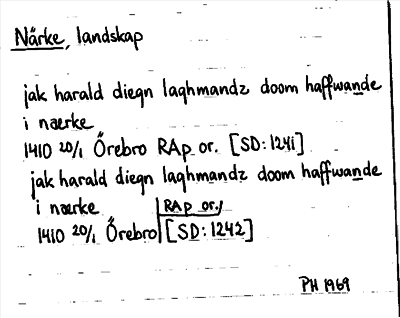 Närke, landskap
jak harald diegn laghmandz doom haffwande
i nærke
1410 20/1 Örebro RAp or. [SD: 1241]
jak harald diegn laghmandz doom haffwande
i nærke RAp or.
1410 20/1 Örebro [SD: 1242]
PH 1969